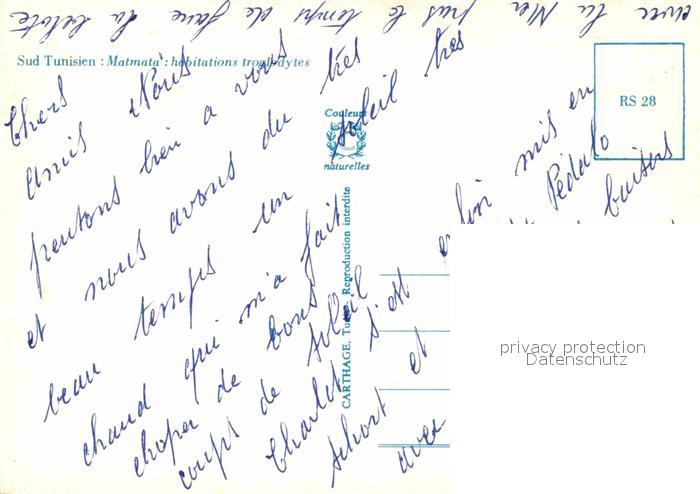 avec la Mer pas le temps de faire la belote
Sud Tunisien : Matmata : habitations troglodytes
RS 28
Couleurs
naturelles
CARTHAGE, Tunis. Reproduction interdite
Chers
amis Nous
pensons bien a vous
et nous avons du très
beau temps un soleil très
chaud qui m'a fait
choper de bons
coups de soleil
Charlot s'est enfin mis en
short et Pédalo
avec baisers
privacy protection
Datenschutz